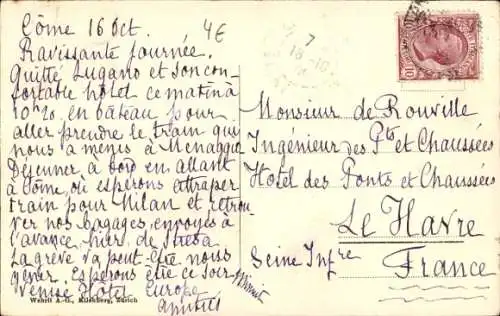 Côme 16 Oct.
4€
Ravissante journée.
Quitté Lugano et son con-
fortable hôtel ce matin à
10h20. en bateau pour
aller prendre le train qui
nous a menés à Menaggio
Déjeuner à bord en allant
à Côme, où espérons attraper
train pour Milan et retrou-
ver nos bagages envoyés à
l'avance hier. de
La grève va peut-être nous
gêner. Espérons être ce soir
Venise Hôtel Europe
amitiés
Monsieur de Rouville
Ingénieur des Pts et Chaussées
Hotel des Ponts et Chaussées
Le Havre
Seine Infre
France
Wehrli A.-G., Kilchberg, Zürich